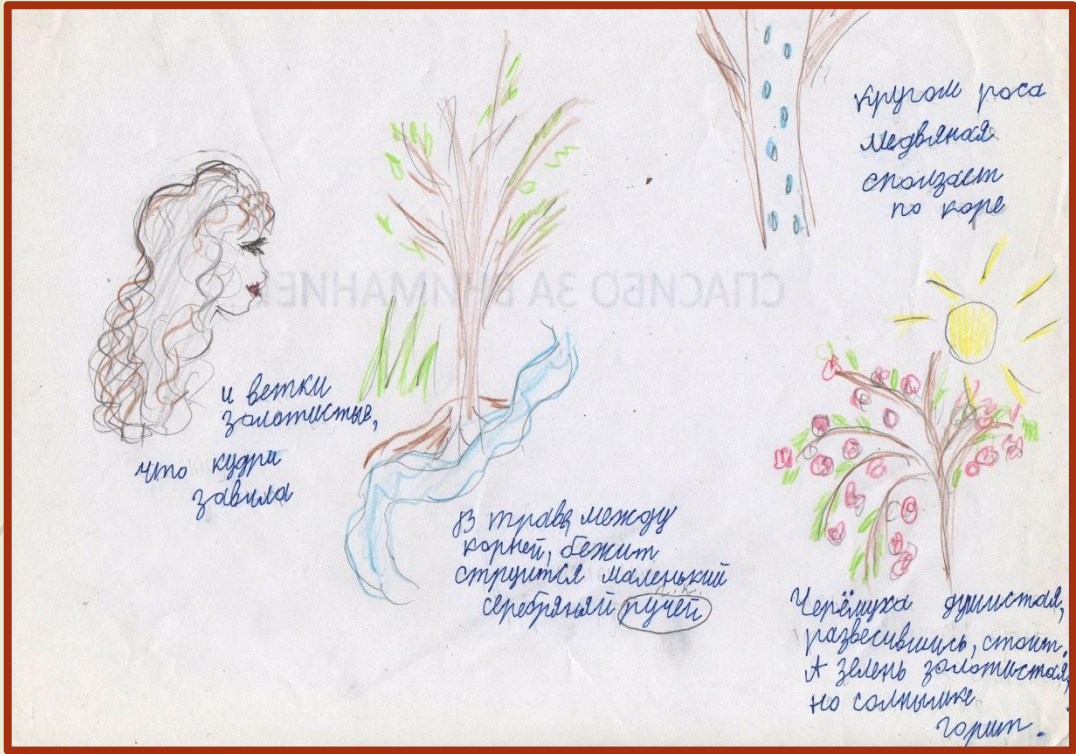 кругом роса
медвяная
сползает
по коре
СПАСИБО ЗА ВНИМАНИЕ
и ветки
золотистые,
что кудри
завила
В траве, между
корней, бежит
струится маленький
серебряный ручей
Черёмуха душистая,
развесившись, стоит.
А зелень золотистая,
на солнышке
горит.